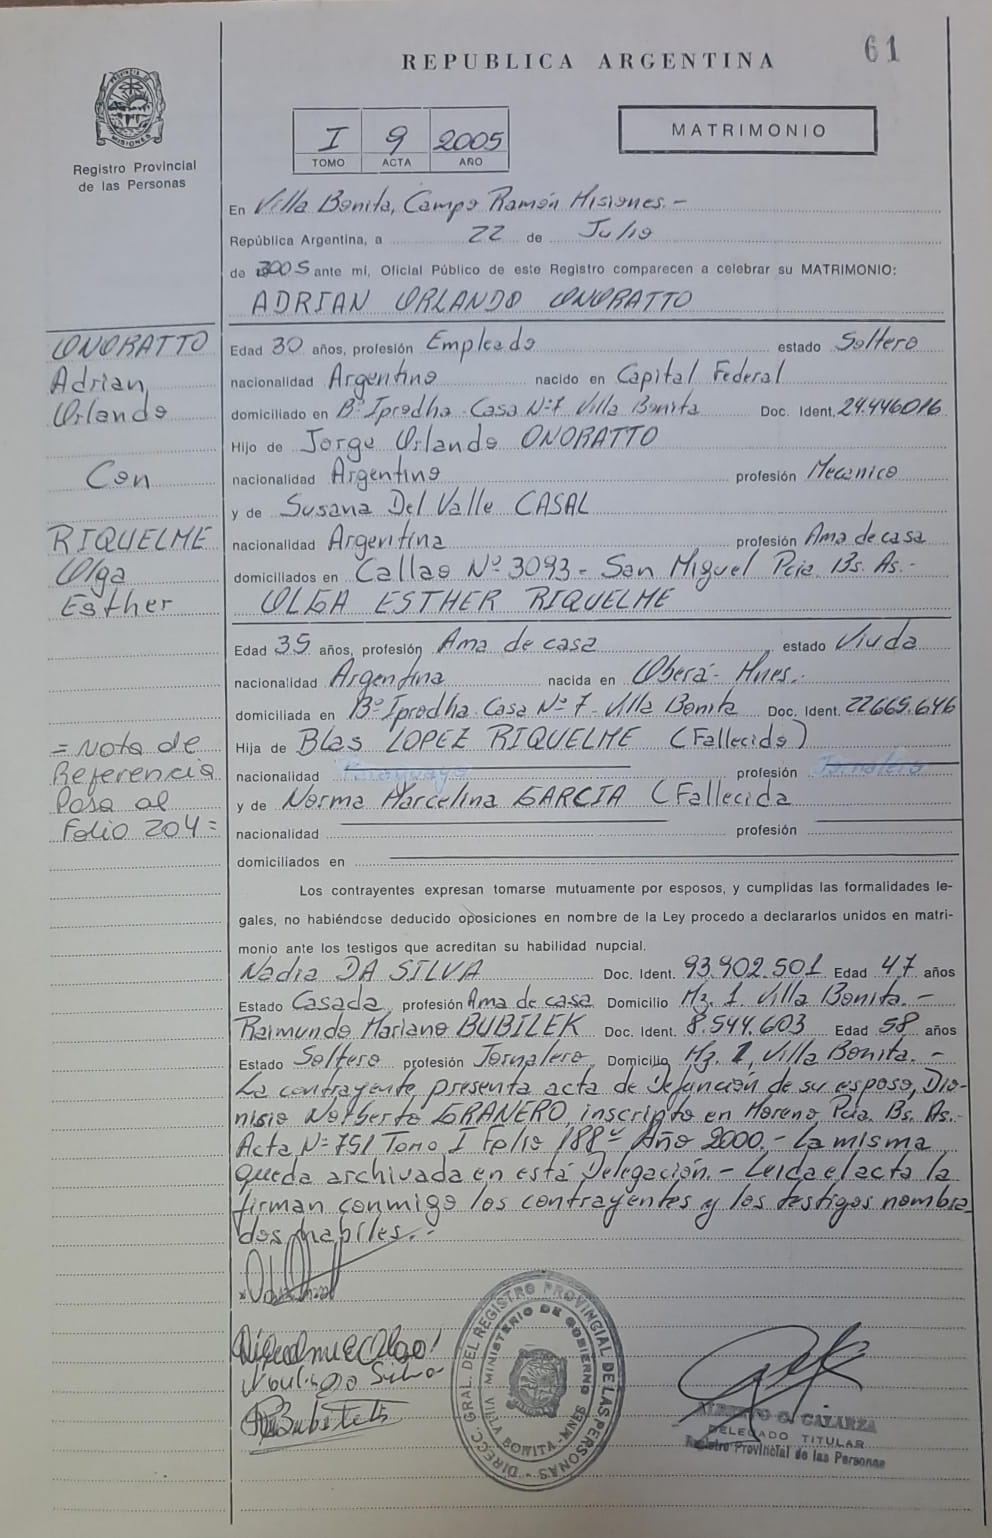 61
REPUBLICA ARGENTINA
PROVINCIA DE
MISIONES
Registro Provincial
de las Personas
I 9 2005
TOMO ACTA AÑO
MATRIMONIO
En Villa Bonita, Campo Ramón Misiones.-
República Argentina, a 22 de Julio
de 2005 ante mí, Oficial Público de este Registro comparecen a celebrar su MATRIMONIO:
ADRIAN ORLANDO ONORATTO
ONORATTO
Adrian
Orlando
Con
RIQUELME
Olga
Esther
Edad 30 años, profesión Empleado estado Soltero
nacionalidad Argentino nacido en Capital Federal
domiciliado en Bº Iprodha-Casa Nº7 Villa Bonita Doc. Ident. 24.446016
Hijo de Jorge Orlando ONORATTO
nacionalidad Argentino profesión Mecanico
y de Susana Del Valle CASAL
nacionalidad Argentina profesión Ama de casa
domiciliados en Callao Nº 3093- San Miguel Pcia. Bs. As.-
OLGA ESTHER RIQUELME
Edad 35 años, profesión Ama de casa estado Viuda
nacionalidad Argentina nacida en Oberá- Mnes.-
domiciliada en Bº Iprodha-Casa Nº 7-Villa Bonita Doc. Ident. 22665.646
Hija de Blas LOPEZ RIQUELME (Fallecido)
nacionalidad Paraguayo profesión Jornalero
y de Norma Marcelina GARCIA (Fallecida
nacionalidad profesión
domiciliados en
=Nota de
Referencia
Pasa al
Folio 204=
Los contrayentes expresan tomarse mutuamente por esposos, y cumplidas las formalidades le-
gales, no habiéndose deducido oposiciones en nombre de la Ley procedo a declararlos unidos en matri-
monio ante los testigos que acreditan su habilidad nupcial.
Nadia DA SILVA Doc. Ident. 93.902.501 Edad 47 años
Estado Casada profesión Ama de casa Domicilio Mz. 1 Villa Bonita.-
Raimundo Mariano BUBILEK Doc. Ident. 8.544.603 Edad 58 años
Estado Soltero profesión Jornalero Domicilio Mz. 1, Villa Bonita.-
La contrayente presenta acta de Defunción de su esposo, Dio-
nisio Norberto GRANERO inscripto en Moreno Pcia. Bs. As.-
Acta Nº 751 Tomo I Folio 188º Año 2000.- La misma
queda archivada en está Delegación.- Leida el acta la
firman conmigo los contrayentes y los testigos nombra
dos habiles.-
Riquelme Olga
DIRECC. GRAL. DEL REGISTRO PROVINCIAL DE LAS PERSONAS
MINISTERIO DE GOBIERNO
VILLA BONITA-MNES
ALBERTO G. GALARZA
DELEGADO TITULAR
Registro Provincial de las Personas